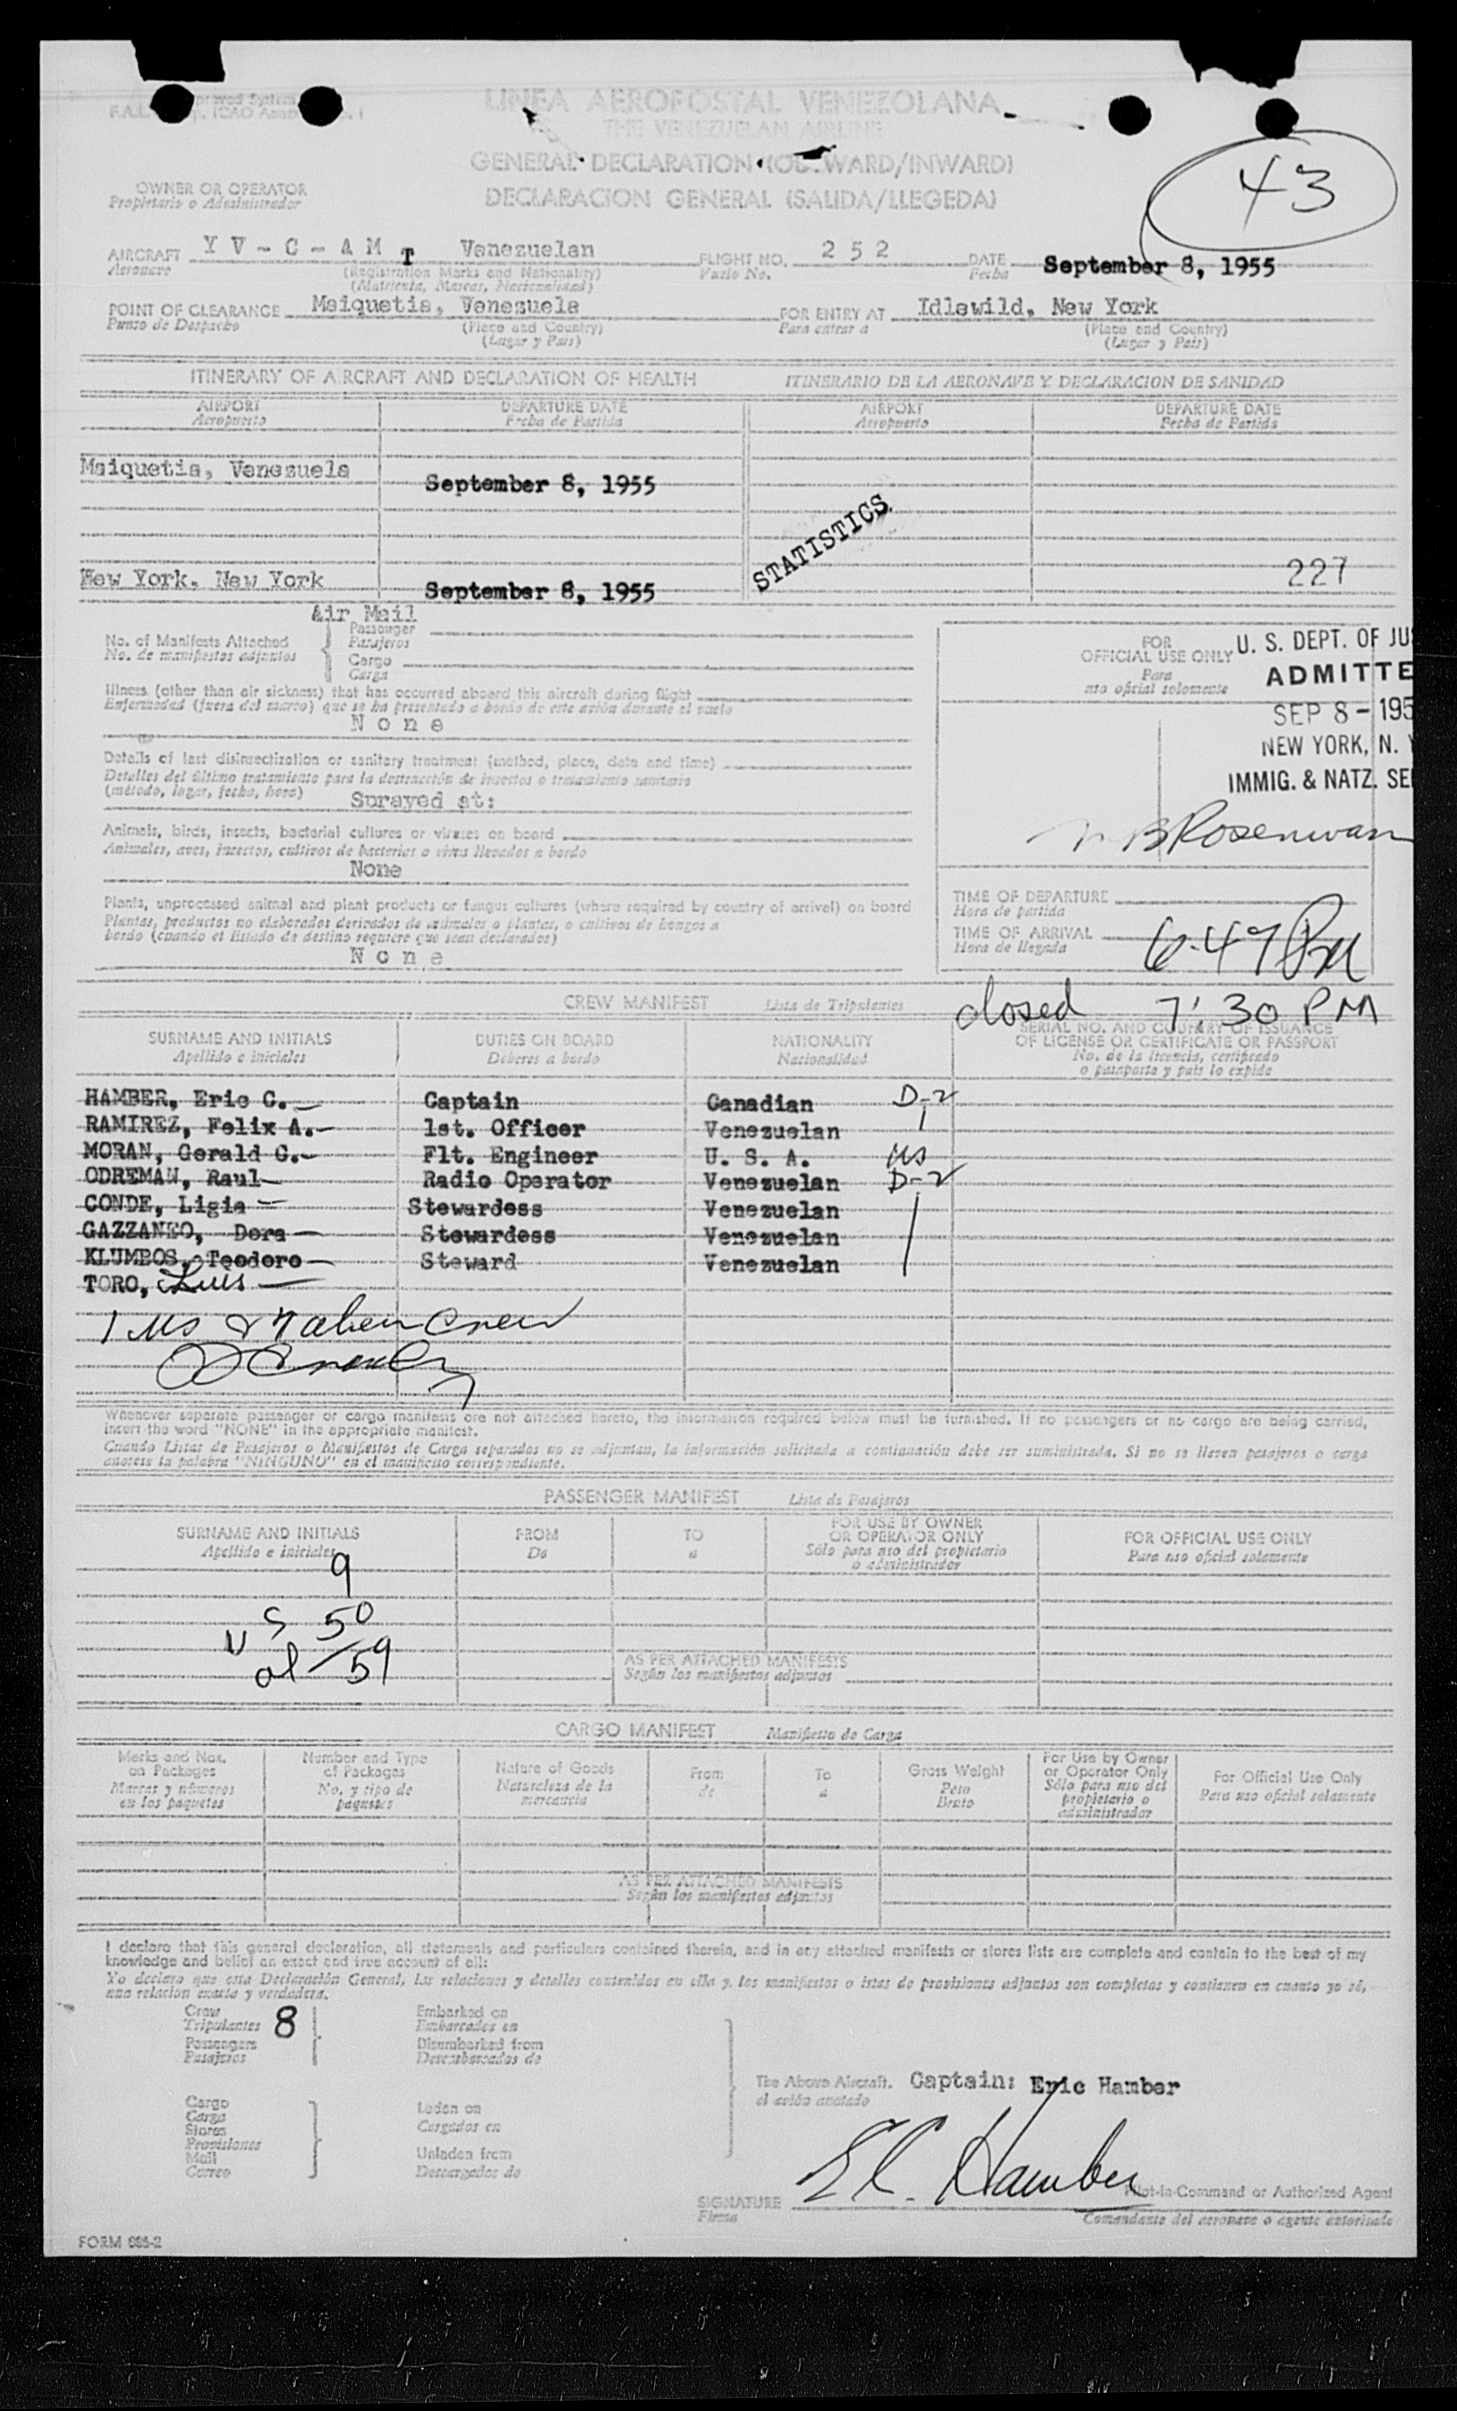 LINEA AEROPOSTAL VENEZOLANA
THE VENEZUELAN AIRLINE
GENERAL DECLARATION (OUTWARD/INWARD)
DECLARACION GENERAL (SALIDA/LLEGEDA)
43
OWNER OR OPERATOR
Propietario o Administrador
AIRCRAFT YV-C-AMT Venezuelan FLIGHT NO. 252 DATE September 8, 1955
Aeronave (Registration Marks and Nationality) Vuelo No. Fecha
(Matricula, Marcas, Nacionalidad)
POINT OF CLEARANCE Maiquetia, Venezuela FOR ENTRY AT Idlewild, New York
Punto de Despacho (Place and Country) Para entrar a (Place and Country)
(Lugar y Pais) (Lugar y Pais)
ITINERARY OF AIRCRAFT AND DECLARATION OF HEALTH ITINERARIO DE LA AERONAVE Y DECLARACION DE SANIDAD
AIRPORT DEPARTURE DATE AIRPORT DEPARTURE DATE
Aeropuerto Fecha de Partida Aeropuerto Fecha de Partida
Maiquetia, Venezuela September 8, 1955
STATISTICS
New York, New York September 8, 1955
227
Air Mail
No. of Manifests Attached Passenger
No. de manifiestos adjuntos Pasajeros
Cargo
Carga
Illness (other than air sickness) that has occurred aboard this aircraft during flight
Enfermedad (fuera del mareo) que se ha presentado a bordo de este avión durante el vuelo
None
Details of last disinsectization or sanitary treatment (method, place, date and time)
Detalles del último tratamiento para la destrucción de insectos o tratamiento sanitario
(método, lugar, fecha, hora) Sprayed at:
Animals, birds, insects, bacterial cultures or viruses on board
Animales, aves, insectos, cultivos de bacterias o virus llevados a bordo
None
Plants, unprocessed animal and plant products or fungus cultures (where required by country of arrival) on board
Plantas, productos no elaborados derivados de animales o plantas, o cultivos de hongos a
bordo (cuando el Estado de destino requiere que sean declarados)
None
FOR
OFFICIAL USE ONLY
Para
uso oficial solamente
U. S. DEPT. OF JU
ADMITTE
SEP 8 - 195
NEW YORK, N. Y
IMMIG. & NATZ. SE
TIME OF DEPARTURE
Hora de partida
TIME OF ARRIVAL 6:47 PM
Hora de llegada
closed 7:30 PM
CREW MANIFEST Lista de Tripulantes
SURNAME AND INITIALS DUTIES ON BOARD NATIONALITY SERIAL NO. AND COUNTRY OF ISSUANCE
Apellido e iniciales Deberes a bordo Nacionalidad OF LICENSE OR CERTIFICATE OR PASSPORT
No. de la licencia, certificado
o pasaporte y pais lo expide
HAMBER, Eric C. Captain Canadian D-2
RAMIREZ, Felix A. 1st. Officer Venezuelan
MORAN, Gerald G. Flt. Engineer U. S. A. US
ODREMAN, Raul Radio Operator Venezuelan D-2
CONDE, Ligia Stewardess Venezuelan
GAZZANEO, Dora Stewardess Venezuelan
KLUMBOS, Teodoro Steward Venezuelan
TORO, Luis
1 US & 7 alien crew
Whenever separate passenger or cargo manifests are not attached hereto, the information required below must be furnished. If no passengers or no cargo are being carried,
insert the word "NONE" in the appropriate manifest.
Cuando Listas de Pasajeros o Manifiestos de Carga separados no se adjuntan, la información solicitada a continuación debe ser suministrada. Si no se llevan pasajeros o carga
anotese la palabra "NINGUNO" en el manifiesto correspondiente.
PASSENGER MANIFEST Lista de Pasajeros
SURNAME AND INITIALS FROM TO FOR USE BY OWNER OR OPERATOR ONLY FOR OFFICIAL USE ONLY
Apellido e iniciales De a Sólo para uso del propietario o administrador Para uso oficial solamente
9
US 50
al 59
AS PER ATTACHED MANIFESTS
Según los manifiestos adjuntos
CARGO MANIFEST Manifiesto de Carga
Marks and Nos. on Packages Number and Type of Packages Nature of Goods From To Gross Weight For Use by Owner or Operator Only For Official Use Only
Marcas y números en los paquetes No. y tipo de paquetes Naturaleza de la mercancia de a Peso Bruto Sólo para uso del propietario o administrador Para uso oficial solamente
AS PER ATTACHED MANIFESTS
Según los manifiestos adjuntos
I declare that this general declaration, all statements and particulars contained therein, and in any attached manifests or stores lists are complete and contain to the best of my
knowledge and belief an exact and true account of all:
Yo declaro que esta Declaración General, las relaciones y detalles contenidos en ella y. los manifiestos o istas de provisiones adjuntos son completos y contienen en cuanto yo sé,
una relación exacta y verdadera.
Crew Embarked on
Tripulantes 8 Embarcados en
Passengers Disembarked from
Pasajeros Desembarcados de
The Above Aircraft. Captain: Eric Hamber
el avión anotado
Cargo Laden on
Carga Cargados en
Stores
Provisiones
Mail Unladen from
Correo Descargados de
E.C. Hamber
SIGNATURE Pilot-in-Command or Authorized Agent
Firma Comandante del aeronave o agente autorizado
FORM 885-2